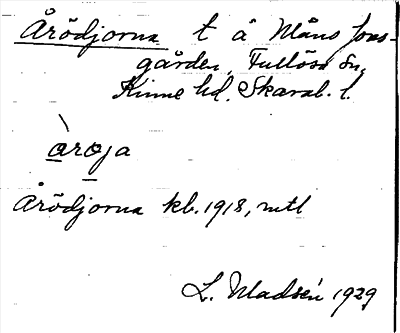 Årödjorna t å Måns Jons-
gården, Fullösa sn,
Kinne hd. Skarab. l.
aroja
Årödjorna kb. 1918, mtl
L. Madsén 1929